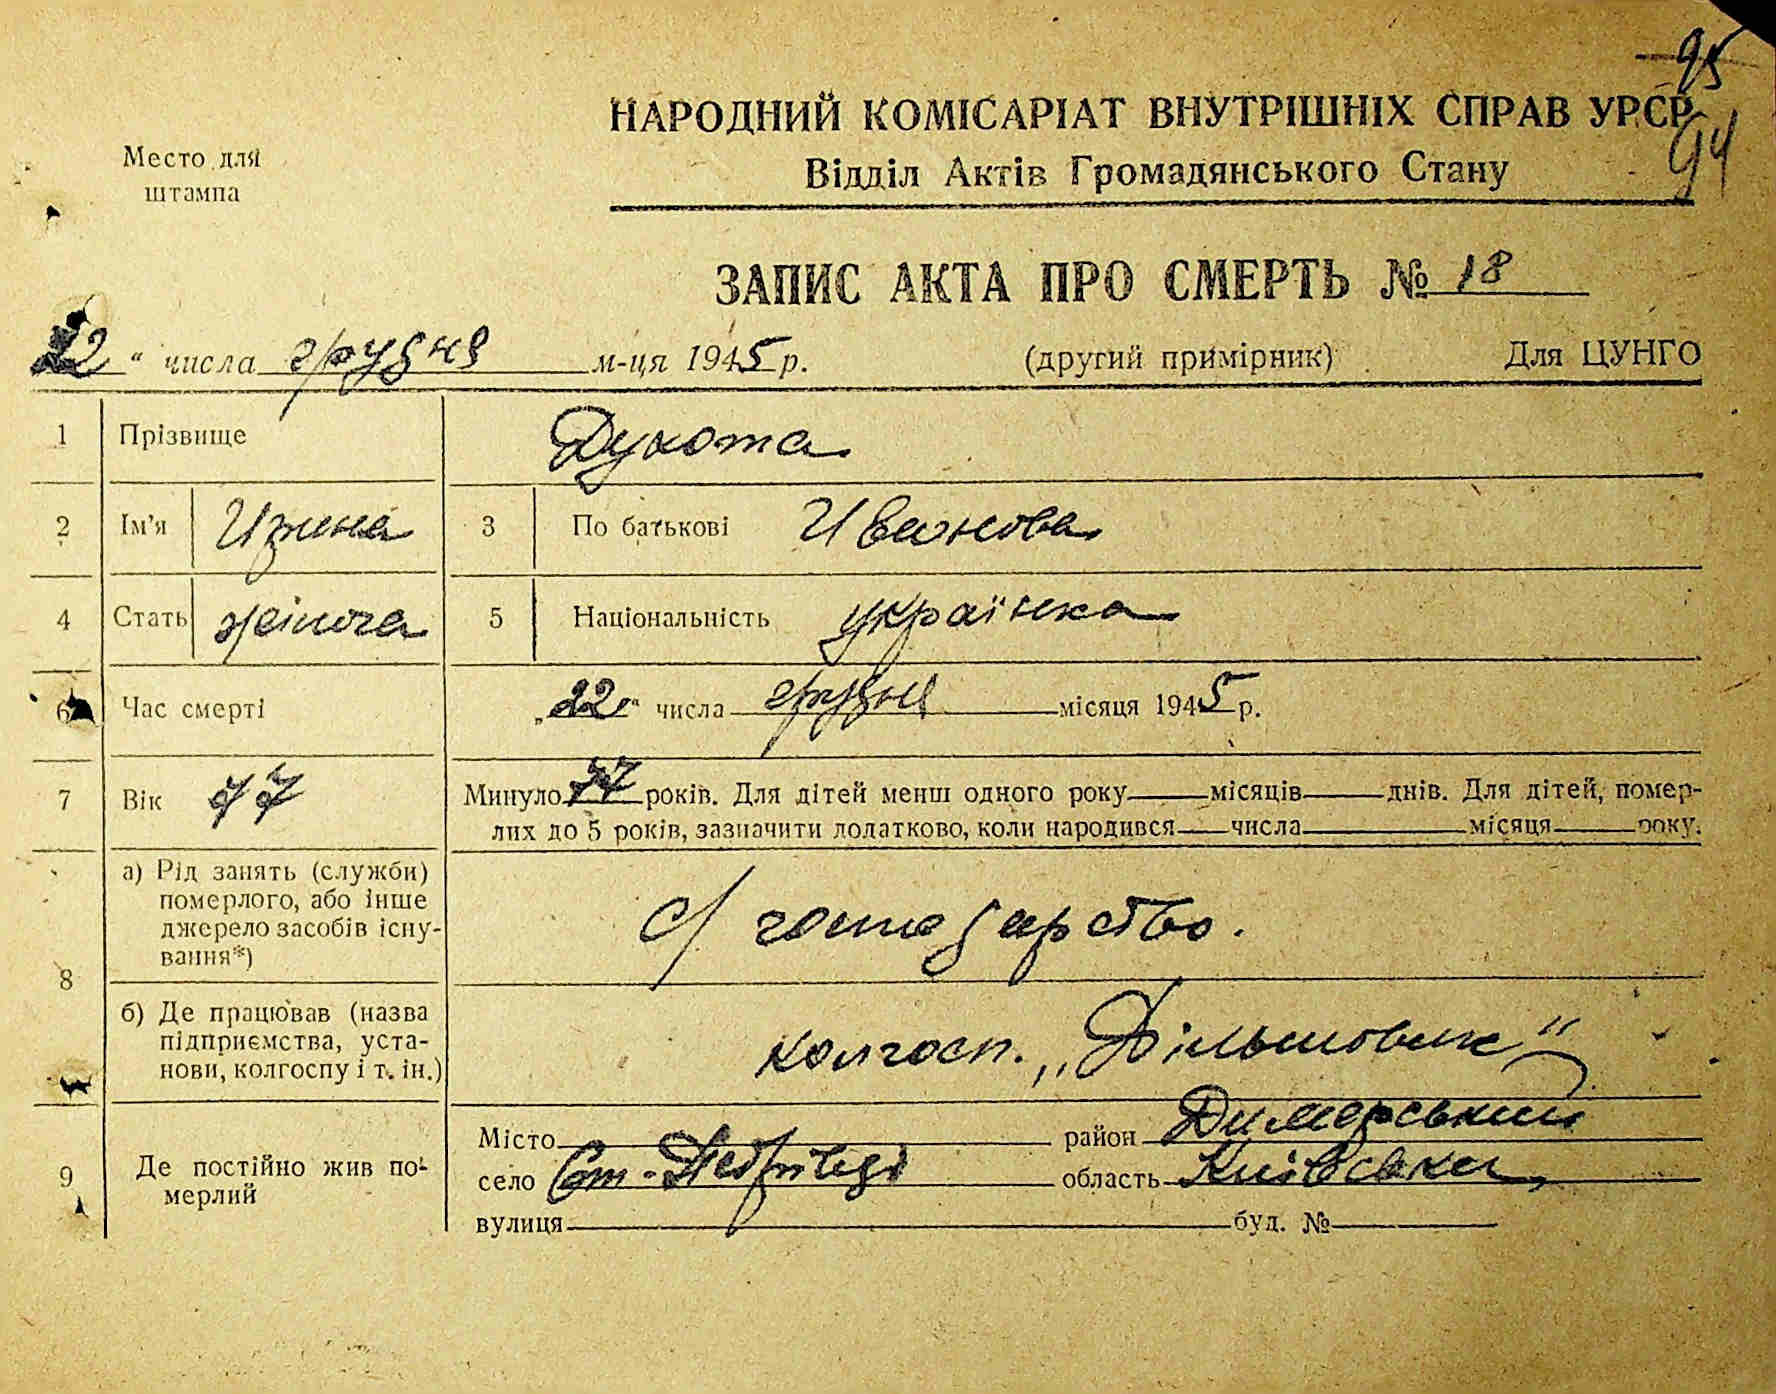 95
НАРОДНИЙ КОМІСАРІАТ ВНУТРІШНІХ СПРАВ УРСР
94
Відділ Актів Громадянського Стану
Место для
штампа
ЗАПИС АКТА ПРО СМЕРТЬ № 18
22 " числа грудня м-ця 1945 р. (другий примірник) Для ЦУНГО
1 Прізвище Духота
2 Ім'я Ирина 3 По батькові Ивановa
4 Стать жіноча 5 Національність українка
6 Час смерті "22" числа грудня місяця 1945 р.
7 Вік 77 Минуло 77 років. Для дітей менш одного року місяців днів. Для дітей, помер-
лих до 5 років, зазначити додатково, коли народився числа місяця року.
8 а) Рід занять (служби)
померлого, або інше
джерело засобів існу-
вання*)
с/ господарство.
б) Де працював (назва
підприємства, уста-
нови, колгоспу і т. ін.)
колгосп. „Більшовик"
9 Де постійно жив по-
мерлий
Місто район Димерський
село Ст-Петрівці область Київська
вулиця буд. №